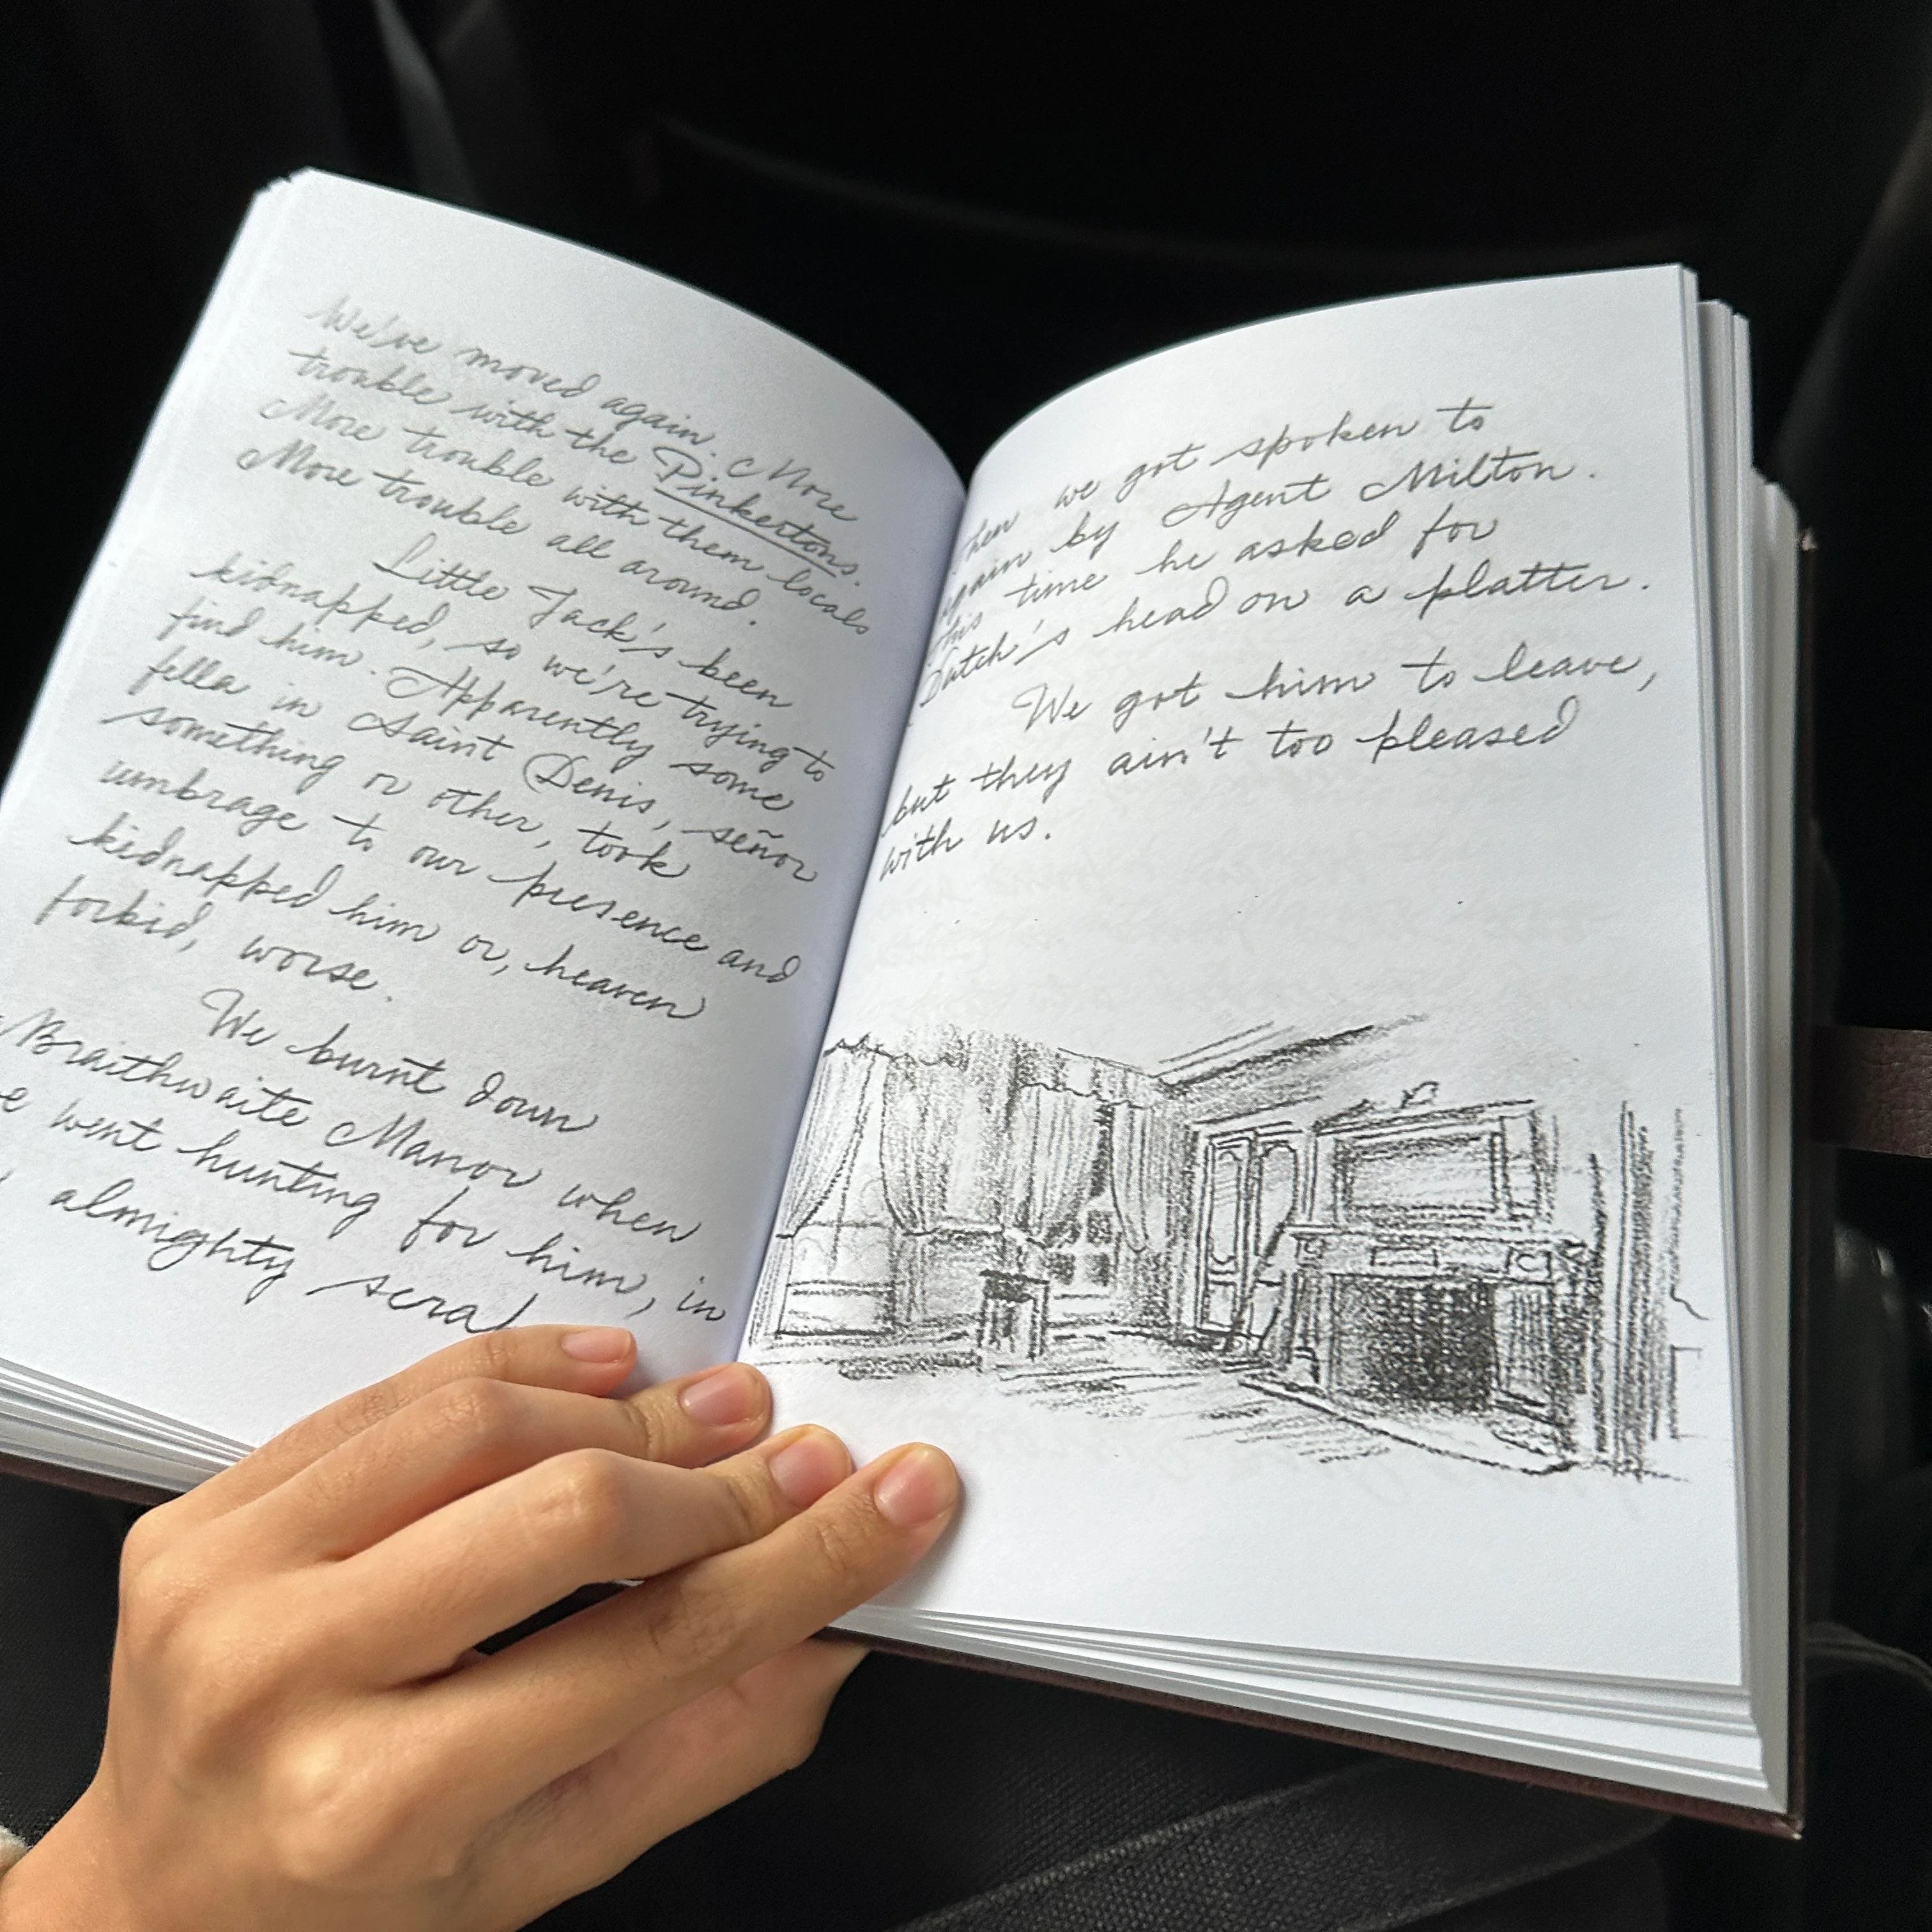 We've moved again. More
trouble with the Pinkertons.
More trouble with them locals
More trouble all around.
Little Jack's been
kidnapped, so we're trying to
find him. Apparently some
fella in Saint Denis, señor
something or other, took
umbrage to our presence and
kidnapped him or, heaven
forbid, worse.
We burnt down
Braithwaite Manor when
went hunting for him, in
almighty
then we got spoken to
again by Agent Milton.
this time he asked for
Dutch's head on a platter.
We got him to leave,
but they ain't too pleased
with us.